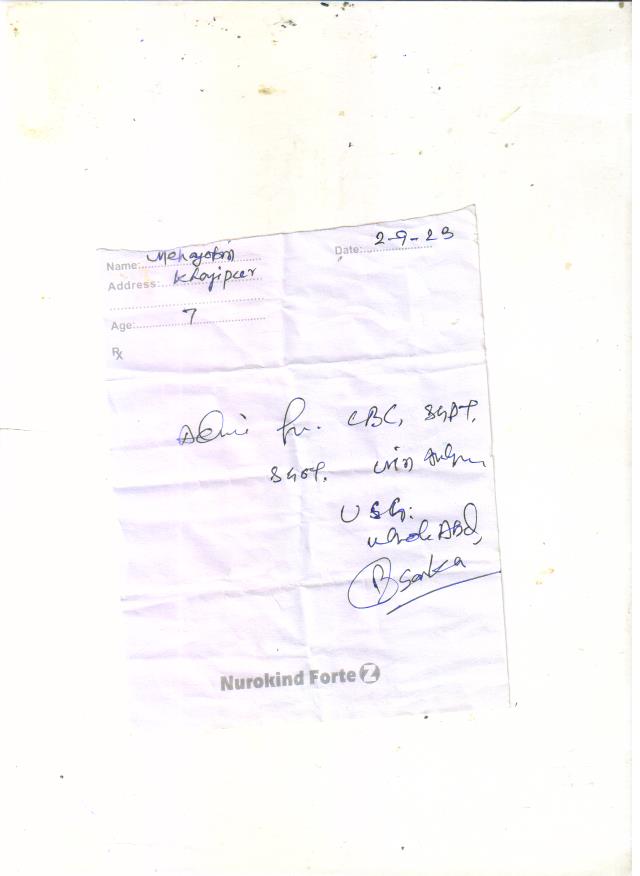 Name: Mehajabin Date: 2-9-23
Address: Khajipur
Age: 7
Rx
Advic for. CBC, SGPT,
SGOT.
USG:
whole ABd,
Nurokind Forte Z